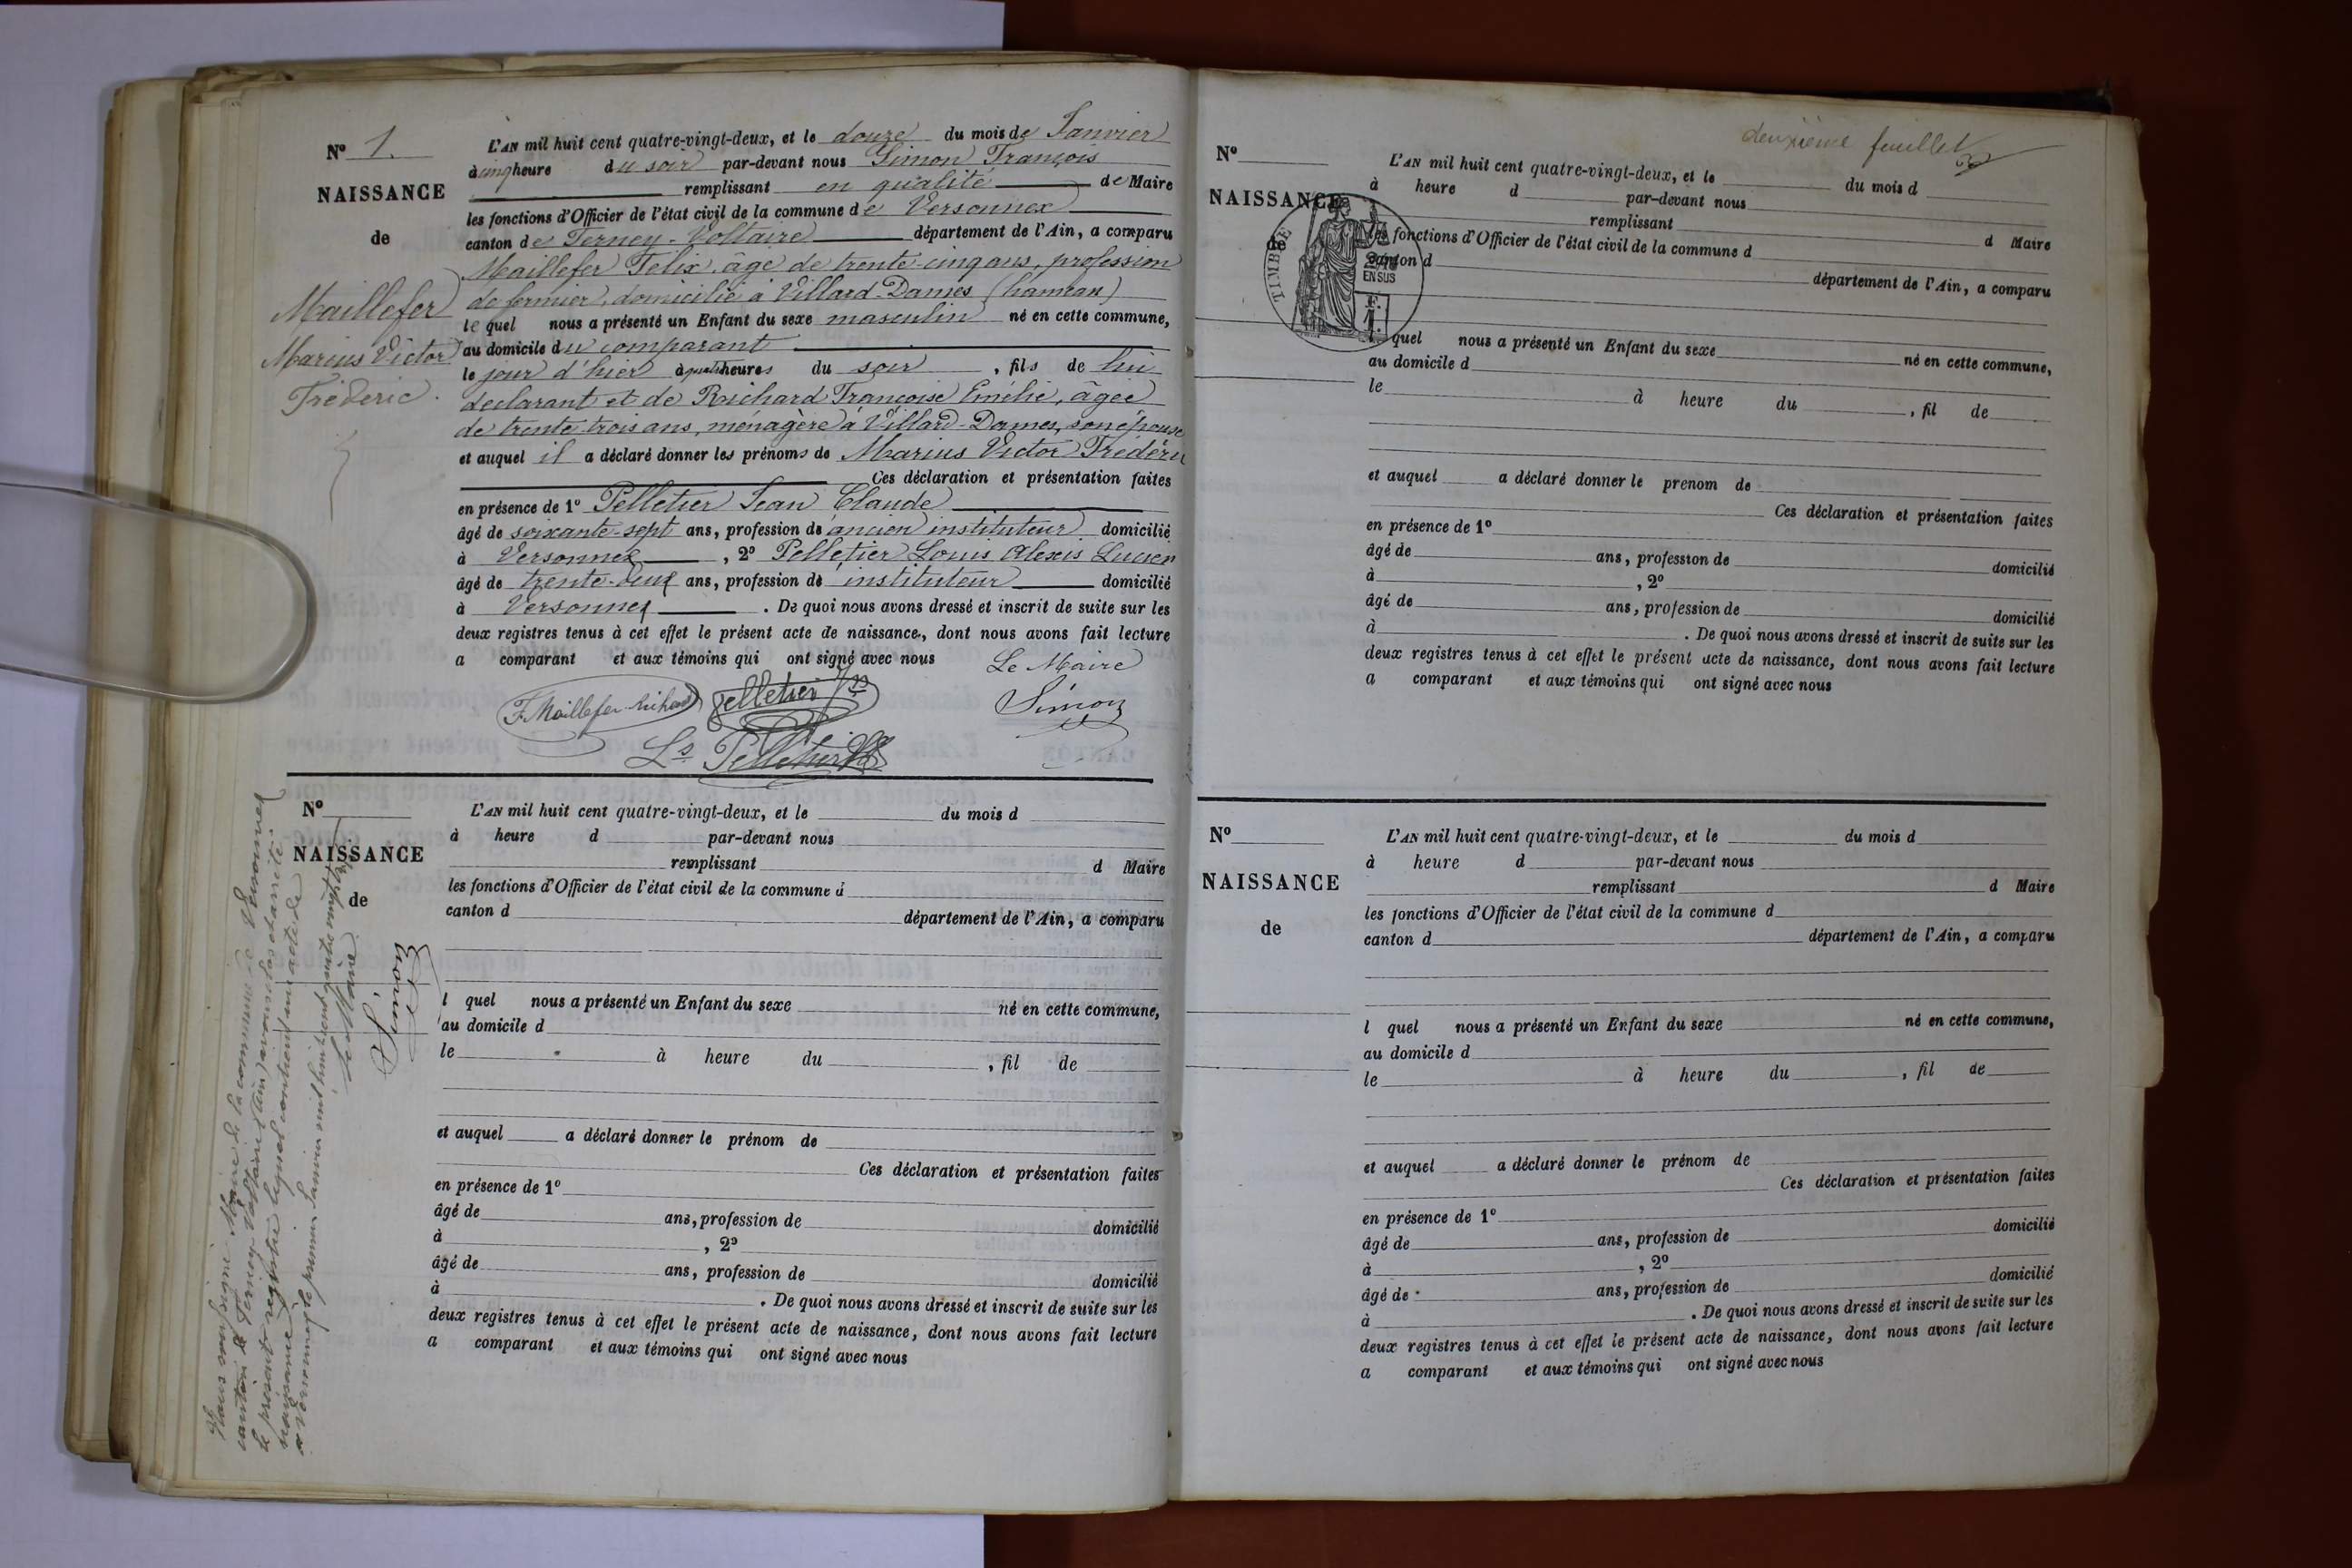 N° 1.
NAISSANCE
de
Maillefer
Marius Victor
Frédéric.
L'AN mil huit cent quatre-vingt-deux, et le douze du mois de Janvier
à cinq heure du soir par-devant nous Simon François
remplissant en qualité de Maire
les fonctions d'Officier de l'état civil de la commune de Versonnex
canton de Ferney-Voltaire département de l'Ain, a comparu
Maillefer Felix, âgé de trente-cinq ans, profession
de fermier, domicilié à Villard-Dames (hameau)
lequel nous a présenté un Enfant du sexe masculin né en cette commune,
au domicile du comparant
le jour d'hier à quatre heures du soir, fils de lui
déclarant et de Richard Françoise Emélie, âgée
de trente-trois ans, ménagère à Villard-Dames, son épouse
et auquel il a déclaré donner les prénoms de Marius Victor Frédéric
Ces déclaration et présentation faites
en présence de 1° Pelletier Jean Claude
âgé de soixante-sept ans, profession de ancien instituteur domicilié
à Versonnex, 2° Pelletier Louis Alexis Lucien
âgé de trente-deux ans, profession de instituteur domicilié
à Versonnex. De quoi nous avons dressé et inscrit de suite sur les
deux registres tenus à cet effet le présent acte de naissance, dont nous avons fait lecture
a comparant et aux témoins qui ont signé avec nous
Le Maire
F. Maillefer-Richard Pelletier Simon
Ls Pelletier
N°
NAISSANCE
de
L'AN mil huit cent quatre-vingt-deux, et le du mois d
à heure d par-devant nous
remplissant d Maire
les fonctions d'Officier de l'état civil de la commune d
canton d département de l'Ain, a comparu
l quel nous a présenté un Enfant du sexe né en cette commune,
au domicile d
le à heure du , fil de
et auquel a déclaré donner le prénom de
Ces déclaration et présentation faites
en présence de 1°
âgé de ans, profession de domicilié
à , 2°
âgé de ans, profession de domicilié
à . De quoi nous avons dressé et inscrit de suite sur les
deux registres tenus à cet effet le présent acte de naissance, dont nous avons fait lecture
a comparant et aux témoins qui ont signé avec nous
Nous soussigné Maire de la commune de Versonnex
canton de Ferney-Voltaire (Ain) avons clos et arrêté
le présent registre lequel contient un acte de
naissance
à Versonnex le premier Janvier mil huit cent quatre vingt
Le Maire
Simon
deuxième feuillet
N°
NAISSANCE
de
TIMBRE
EN SUS
L'AN mil huit cent quatre-vingt-deux, et le du mois d
à heure d par-devant nous
remplissant d Maire
les fonctions d'Officier de l'état civil de la commune d
canton d département de l'Ain, a comparu
l quel nous a présenté un Enfant du sexe né en cette commune,
au domicile d
le à heure du , fil de
et auquel a déclaré donner le prenom de
Ces déclaration et présentation faites
en présence de 1°
âgé de ans, profession de domicilié
à , 2°
âgé de ans, profession de domicilié
à . De quoi nous avons dressé et inscrit de suite sur les
deux registres tenus à cet effet le présent acte de naissance, dont nous avons fait lecture
a comparant et aux témoins qui ont signé avec nous
N°
NAISSANCE
de
L'AN mil huit cent quatre-vingt-deux, et le du mois d
à heure d par-devant nous
remplissant d Maire
les fonctions d'Officier de l'état civil de la commune d
canton d département de l'Ain, a comparu
l quel nous a présenté un Enfant du sexe né en cette commune,
au domicile d
le à heure du , fil de
et auquel a déclaré donner le prénom de
Ces déclaration et présentation faites
en présence de 1°
âgé de ans, profession de domicilié
à , 2°
âgé de ans, profession de domicilié
à . De quoi nous avons dressé et inscrit de suite sur les
deux registres tenus à cet effet le présent acte de naissance, dont nous avons fait lecture
a comparant et aux témoins qui ont signé avec nous